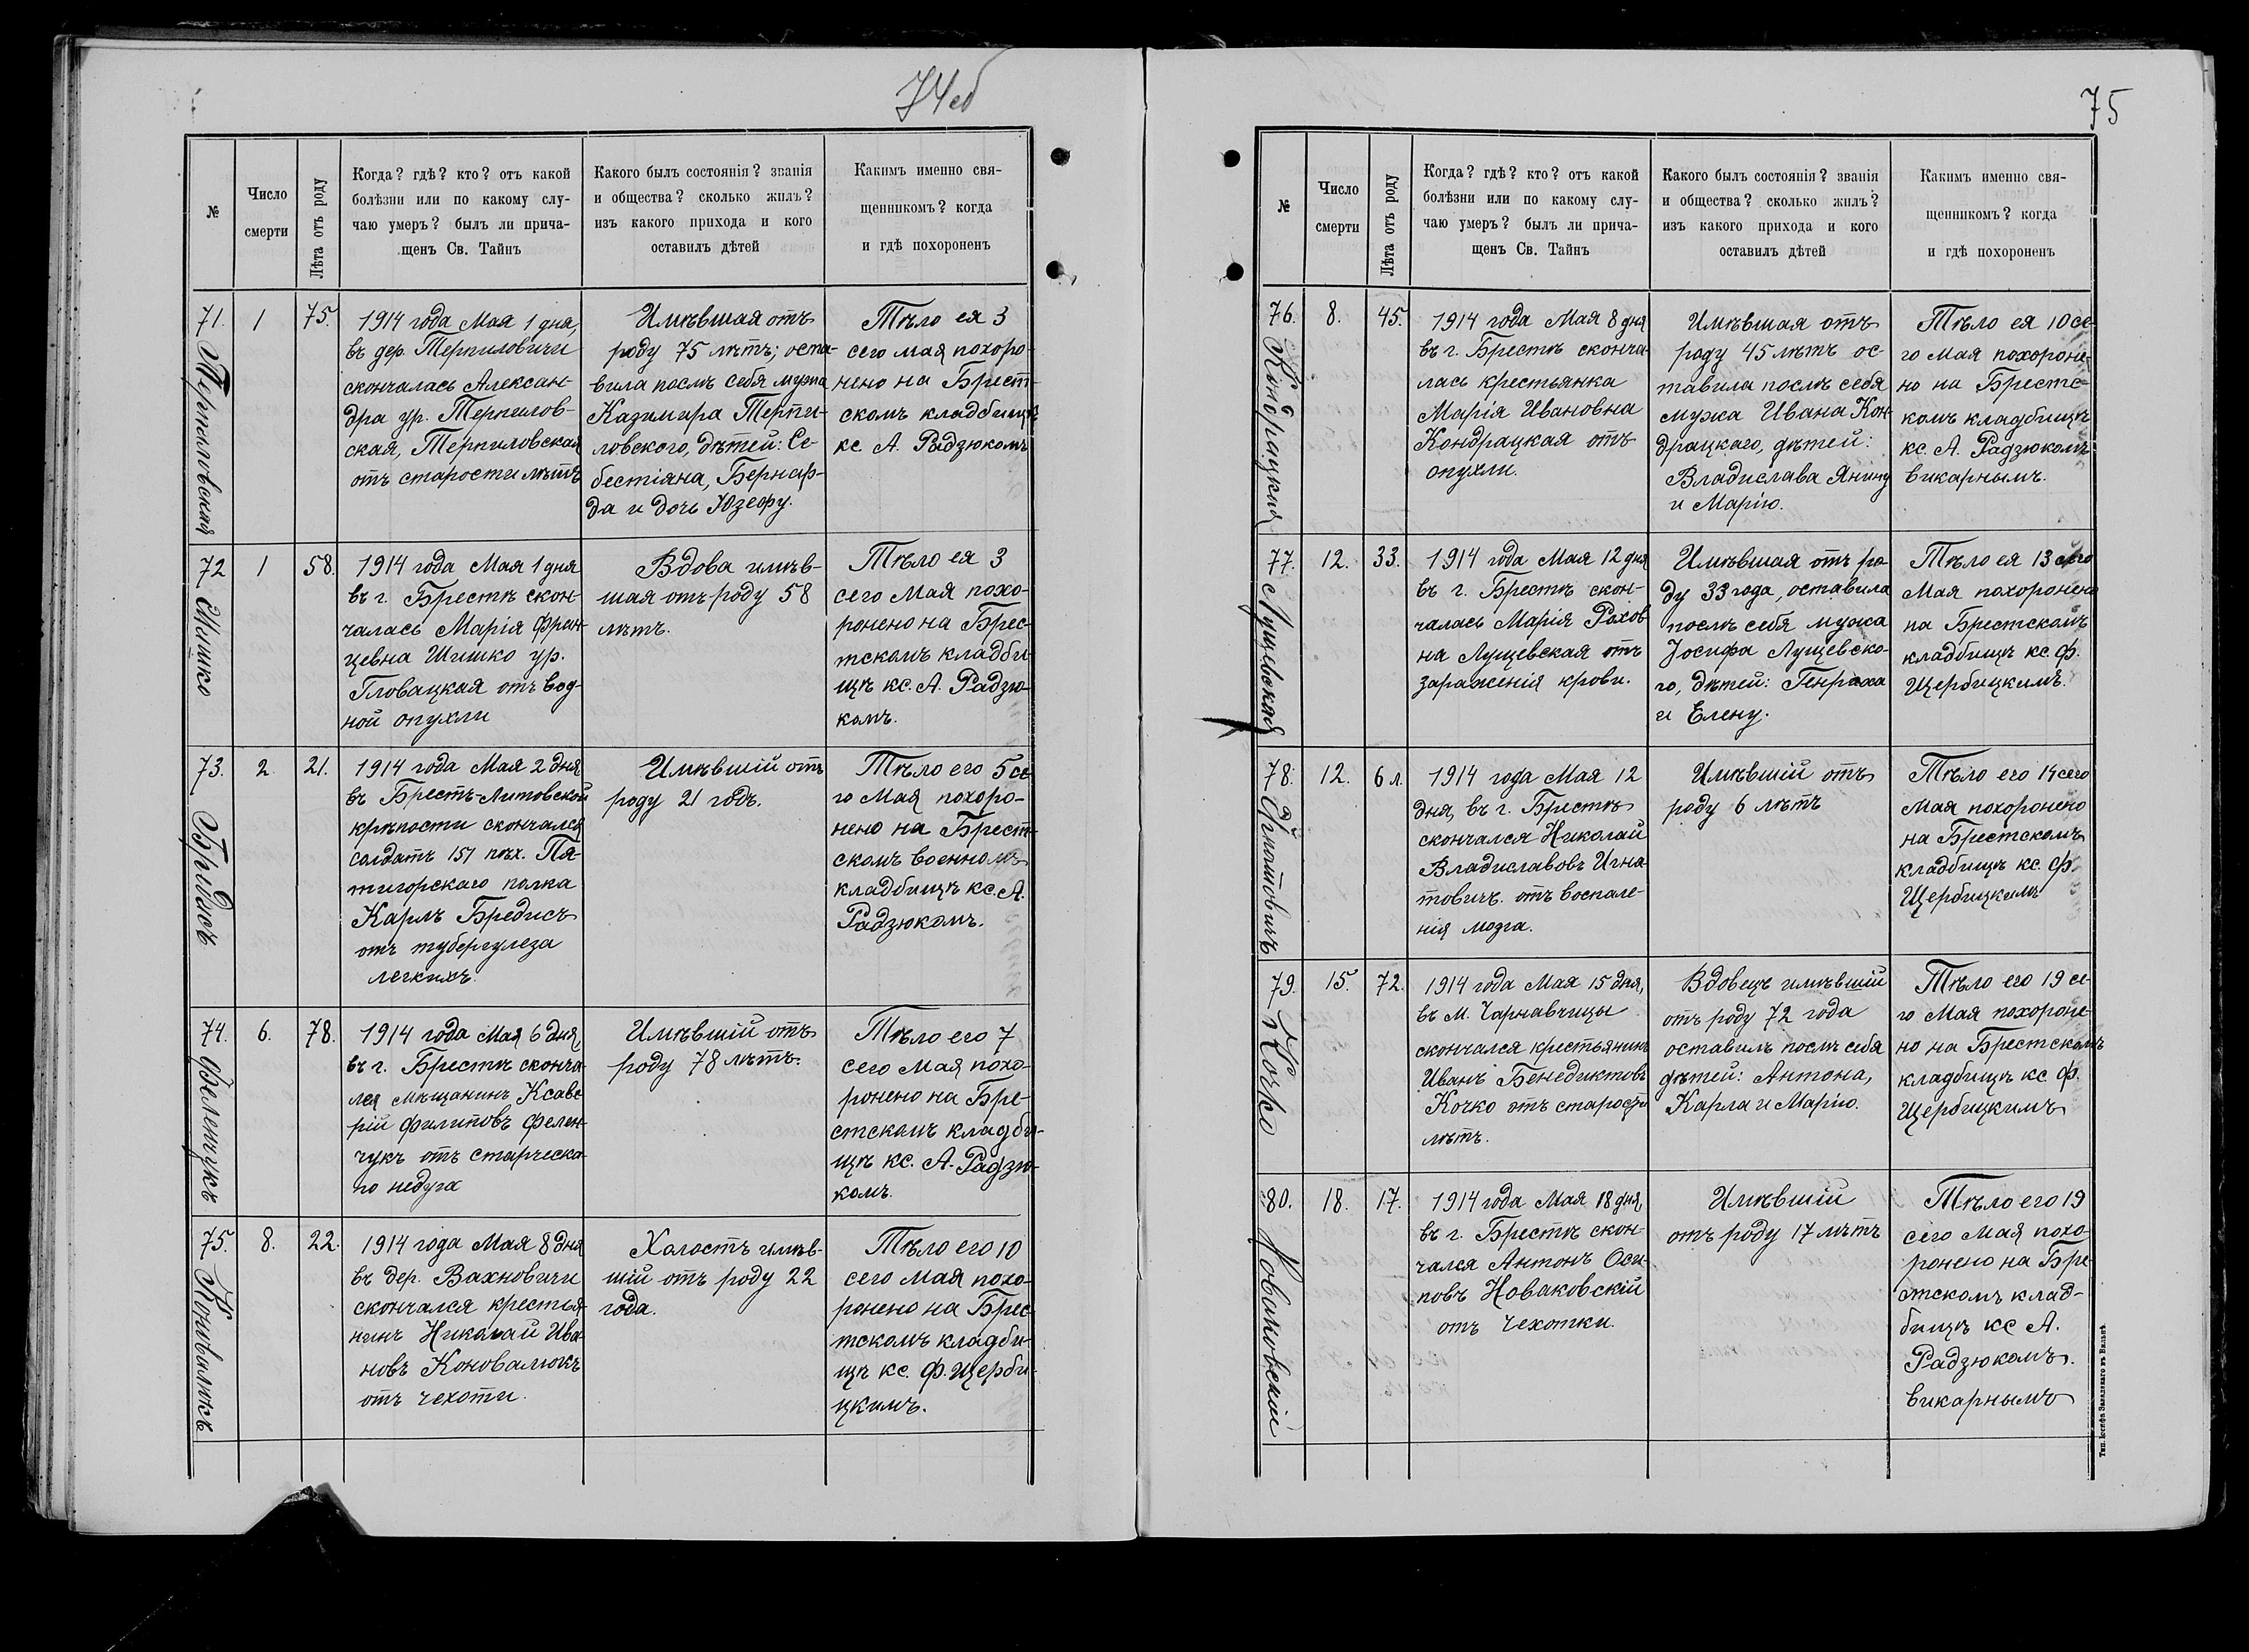 74об
№
Число
смерти
Лѣта отъ роду
Когда? гдѣ? кто? отъ какой
болѣзни или по какому слу-
чаю умеръ? былъ ли прича-
щенъ Св. Тайнъ
Какого былъ состоянія? званія
и общества? сколько жилъ?
изъ какого прихода и кого
оставилъ дѣтей
Какимъ именно свя-
щенникомъ? когда
и гдѣ похороненъ
71.
Терпиловская
1
75.
1914 года Мая 1 дня,
въ дер. Терпиловичи
скончалась Алексан-
дра ур. Терпилов-
ская, Терпиловская
отъ старости лѣтъ
Имѣвшая отъ
роду 75 лѣтъ; оста-
вила послѣ себя мужа
Казимира Терпи-
ловского, дѣтей: Се-
бестіяна, Бернар-
да и дочь Юзефу.
Тѣло ея 3
сего мая похоро-
нено на Брест-
скомъ кладбищѣ
кс. А. Радзюкомъ
72
Шишко
1
58.
1914 года Мая 1 дня
въ г. Брестѣ скон-
чалась Марія Фран-
цевна Шишко ур.
Гловацкая отъ вод-
ной опухли
Вдова имѣв-
шая отъ роду 58
лѣтъ.
Тѣло ея 3
сего Мая похо-
ронено на Брес-
тскомъ кладби-
щѣ кс. А. Радзю-
комъ.
73.
Бредисъ
2
21.
1914 года Мая 2 дня
въ Брестъ-Литовской
крѣпости скончался
солдатъ 151 пѣх. Пя-
тигорскаго полка
Карлъ Бредисъ
отъ туберкулеза
легкихъ.
Имѣвшій отъ
роду 21 годъ.
Тѣло его 5 се-
го Мая похоро-
нено на Брест-
скомъ военномъ
кладбищѣ кс. А.
Радзюкомъ.
74.
Феленчукъ
6.
78.
1914 года Мая 6 дня
въ г. Брестѣ сконча-
лся мѣщанинъ Ксаве-
рій Филиповъ Фелен-
чукъ отъ старческа-
го недуга
Имѣвшій отъ
роду 78 лѣтъ.
Тѣло его 7
сего Мая похо-
ронено на Бре-
стскомъ кладби-
щѣ кс. А. Радзю-
комъ.
75.
Коновалюкъ
8.
22.
1914 года Мая 8 дня
въ дер. Вахновичи
скончался крестья-
нинъ Николай Ива-
новъ Коновалюкъ
отъ чехоти.
Холостъ имѣв-
шій отъ роду 22
года.
Тѣло его 10
сего Мая похо-
ронено на Брес-
тскомъ кладби-
щѣ кс. Ф. Щерби-
цкимъ.
75
№
Число
смерти
Лѣта отъ роду
Когда? гдѣ? кто? отъ какой
болѣзни или по какому слу-
чаю умеръ? былъ ли прича-
щенъ Св. Тайнъ
Какого былъ состоянія? званія
и общества? сколько жилъ?
изъ какого прихода и кого
оставилъ дѣтей
Какимъ именно свя-
щенникомъ? когда
и гдѣ похороненъ
76.
Кондрацкая
8.
45.
1914 года Мая 8 дня
въ г. Брестѣ сконча-
лась крестьянка
Марія Ивановна
Кондрацкая отъ
опухли.
Имѣвшая отъ
роду 45 лѣтъ ос-
тавила послѣ себя
мужа Ивана Кон-
драцкаго, дѣтей:
Владислава Янину
и Марію.
Тѣло ея 10 се-
го Мая похороне-
но на Брестс-
комъ кладбищѣ
кс. А. Радзюкомъ
викарнымъ.
77.
Лущевская
12.
33.
1914 года Мая 12 дня
въ г. Брестѣ скон-
чалась Марія Рохов-
на Лущевская отъ
зараженія крови.
Имѣвшая отъ ро-
ду 33 года, оставила
послѣ себя мужа
Іосифа Лущевско-
го, дѣтей: Генриха
и Елену.
Тѣло ея 13 сего
Мая похоронено
на Брестскомъ
кладбищѣ кс. Ф.
Щербицкимъ.
78.
Игнатовичъ
12.
6 л.
1914 года Мая 12
дня, въ г. Брестѣ
скончался Николай
Владиславовъ Игна-
товичъ. отъ воспале-
нія мозга.
Имѣвшій отъ
роду 6 лѣтъ
Тѣло его 14 сего
Мая похоронено
на Брестскомъ
кладбищѣ кс. Ф.
Щербицкимъ
79.
Кочко
15.
72.
1914 года Мая 15 дня,
въ М. Чарнавчицы
скончался крестьянинъ
Иванъ Бенедиктовъ
Кочко отъ старости
лѣтъ.
Вдовецъ имѣвшій
отъ роду 72 года
оставилъ послѣ себя
дѣтей: Антона,
Карла и Марію.
Тѣло его 19 се-
го Мая похороне-
но на Брестскомъ
кладбищѣ кс. Ф.
Щербицкимъ
80.
Новаковскій
18.
17.
1914 года Мая 18 дня,
въ г. Брестѣ скон-
чался Антонъ Оси-
повъ Новаковскій
отъ чехотки.
Имѣвшій
отъ роду 17 лѣтъ
Тѣло его 19
сего Мая похо-
ронено на Бре-
стскомъ клад-
бищѣ кс А.
Радзюкомъ.
викарнымъ
Тип. Іосифа Завадзкаго въ Вильнѣ.